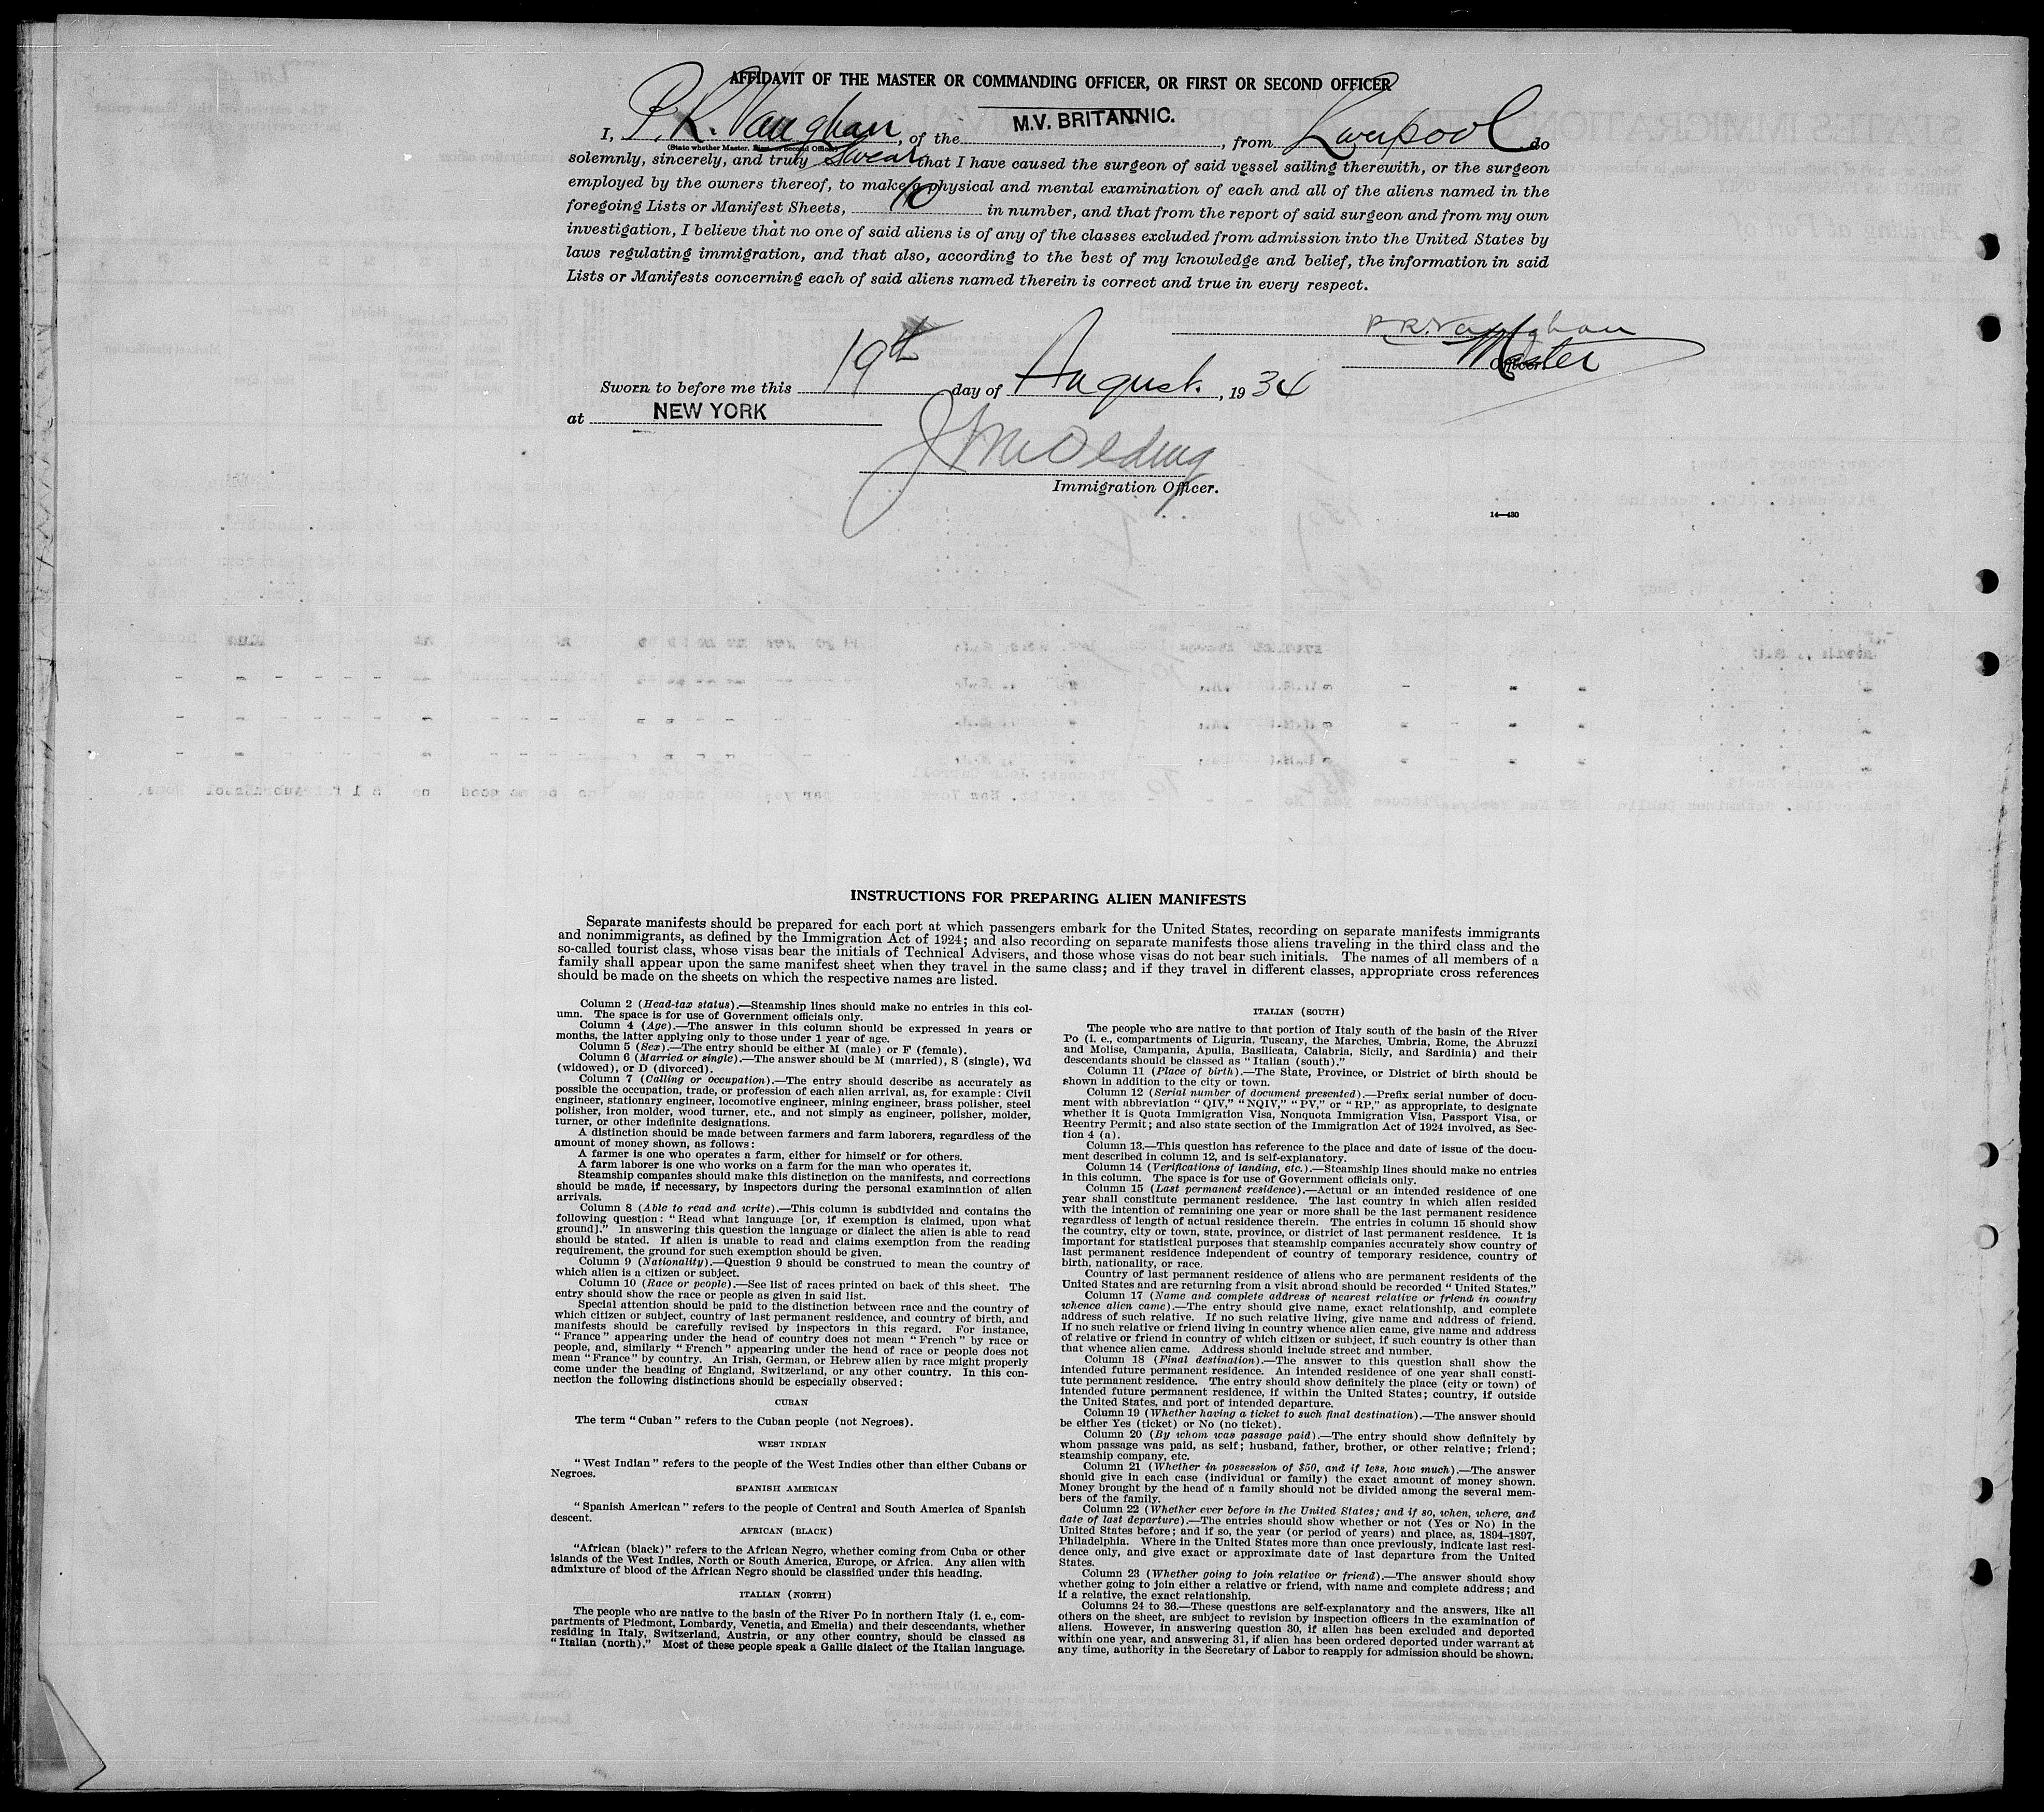 AFFIDAVIT OF THE MASTER OR COMMANDING OFFICER, OR FIRST OR SECOND OFFICER
I, P. R. Vaughan, of the M.V. BRITANNIC., from Liverpool do
(State whether Master, First or Second Officer)
solemnly, sincerely, and truly Swear that I have caused the surgeon of said vessel sailing therewith, or the surgeon
employed by the owners thereof, to make a physical and mental examination of each and all of the aliens named in the
foregoing Lists or Manifest Sheets, 10 in number, and that from the report of said surgeon and from my own
investigation, I believe that no one of said aliens is of any of the classes excluded from admission into the United States by
laws regulating immigration, and that also, according to the best of my knowledge and belief, the information in said
Lists or Manifests concerning each of said aliens named therein is correct and true in every respect.
P R Vaughan
Master
Officer.
Sworn to before me this 19th day of August., 1934
at NEW YORK
Immigration Officer.
14—430
INSTRUCTIONS FOR PREPARING ALIEN MANIFESTS
Separate manifests should be prepared for each port at which passengers embark for the United States, recording on separate manifests immigrants
and nonimmigrants, as defined by the Immigration Act of 1924; and also recording on separate manifests those aliens traveling in the third class and the
so-called tourist class, whose visas bear the initials of Technical Advisers, and those whose visas do not bear such initials. The names of all members of a
family shall appear upon the same manifest sheet when they travel in the same class; and if they travel in different classes, appropriate cross references
should be made on the sheets on which the respective names are listed.
Column 2 (Head-tax status).—Steamship lines should make no entries in this col-
umn. The space is for use of Government officials only.
Column 4 (Age).—The answer in this column should be expressed in years or
months, the latter applying only to those under 1 year of age.
Column 5 (Sex).—The entry should be either M (male) or F (female).
Column 6 (Married or single).—The answer should be M (married), S (single), Wd
(widowed), or D (divorced).
Column 7 (Calling or occupation).—The entry should describe as accurately as
possible the occupation, trade, or profession of each alien arrival, as, for example: Civil
engineer, stationary engineer, locomotive engineer, mining engineer, brass polisher, steel
polisher, iron molder, wood turner, etc., and not simply as engineer, polisher, molder,
turner, or other indefinite designations.
A distinction should be made between farmers and farm laborers, regardless of the
amount of money shown, as follows:
A farmer is one who operates a farm, either for himself or for others.
A farm laborer is one who works on a farm for the man who operates it.
Steamship companies should make this distinction on the manifests, and corrections
should be made, if necessary, by inspectors during the personal examination of alien
arrivals.
Column 8 (Able to read and write).—This column is subdivided and contains the
following question: "Read what language [or, if exemption is claimed, upon what
ground]." In answering this question the language or dialect the alien is able to read
should be stated. If alien is unable to read and claims exemption from the reading
requirement, the ground for such exemption should be given.
Column 9 (Nationality).—Question 9 should be construed to mean the country of
which alien is a citizen or subject.
Column 10 (Race or people).—See list of races printed on back of this sheet. The
entry should show the race or people as given in said list.
Special attention should be paid to the distinction between race and the country of
which citizen or subject, country of last permanent residence, and country of birth, and
manifests should be carefully revised by inspectors in this regard. For instance,
"France" appearing under the head of country does not mean "French" by race or
people, and, similarly "French" appearing under the head of race or people does not
mean "France" by country. An Irish, German, or Hebrew alien by race might properly
come under the heading of England, Switzerland, or any other country. In this con-
nection the following distinctions should be especially observed:
CUBAN
The term "Cuban" refers to the Cuban people (not Negroes).
WEST INDIAN
"West Indian" refers to the people of the West Indies other than either Cubans or
Negroes.
SPANISH AMERICAN
"Spanish American" refers to the people of Central and South America of Spanish
descent.
AFRICAN (BLACK)
"African (black)" refers to the African Negro, whether coming from Cuba or other
islands of the West Indies, North or South America, Europe, or Africa. Any alien with
admixture of blood of the African Negro should be classified under this heading.
ITALIAN (NORTH)
The people who are native to the basin of the River Po in northern Italy (i. e., com-
partments of Piedmont, Lombardy, Venetia, and Emelia) and their descendants, whether
residing in Italy, Switzerland, Austria, or any other country, should be classed as
"Italian (north)." Most of these people speak a Gallic dialect of the Italian language.
ITALIAN (SOUTH)
The people who are native to that portion of Italy south of the basin of the River
Po (i. e., compartments of Liguria, Tuscany, the Marches, Umbria, Rome, the Abruzzi
and Molise, Campania, Apulia, Basilicata, Calabria, Sicily, and Sardinia) and their
descendants should be classed as "Italian (south)."
Column 11 (Place of birth).—The State, Province, or District of birth should be
shown in addition to the city or town.
Column 12 (Serial number of document presented).—Prefix serial number of docu-
ment with abbreviation "QIV," "NQIV," "PV," or "RP," as appropriate, to designate
whether it is Quota Immigration Visa, Nonquota Immigration Visa, Passport Visa, or
Reentry Permit; and also state section of the Immigration Act of 1924 involved, as Sec-
tion 4 (a).
Column 13.—This question has reference to the place and date of issue of the docu-
ment described in column 12, and is self-explanatory.
Column 14 (Verifications of landing, etc.).—Steamship lines should make no entries
in this column. The space is for use of Government officials only.
Column 15 (Last permanent residence).—Actual or an intended residence of one
year shall constitute permanent residence. The last country in which alien resided
with the intention of remaining one year or more shall be the last permanent residence
regardless of length of actual residence therein. The entries in column 15 should show
the country, city or town, state, province, or district of last permanent residence. It is
important for statistical purposes that steamship companies accurately show country of
last permanent residence independent of country of temporary residence, country of
birth, nationality, or race.
Country of last permanent residence of aliens who are permanent residents of the
United States and are returning from a visit abroad should be recorded "United States."
Column 17 (Name and complete address of nearest relative or friend in country
whence alien came).—The entry should give name, exact relationship, and complete
address of such relative. If no such relative living, give name and address of friend.
If no such relative or friend living in country whence alien came, give name and address
of relative or friend in country of which citizen or subject, if such country is other than
that whence alien came. Address should include street and number.
Column 18 (Final destination).—The answer to this question shall show the
intended future permanent residence. An intended residence of one year shall consti-
tute permanent residence. The entry should show definitely the place (city or town) of
intended future permanent residence, if within the United States; country, if outside
the United States, and port of intended departure.
Column 19 (Whether having a ticket to such final destination).—The answer should
be either Yes (ticket) or No (no ticket).
Column 20 (By whom was passage paid).—The entry should show definitely by
whom passage was paid, as self; husband, father, brother, or other relative; friend;
steamship company, etc.
Column 21 (Whether in possession of $50, and if less, how much).—The answer
should give in each case (individual or family) the exact amount of money shown.
Money brought by the head of a family should not be divided among the several mem-
bers of the family.
Column 22 (Whether ever before in the United States; and if so, when, where, and
date of last departure).—The entries should show whether or not (Yes or No) in the
United States before; and if so, the year (or period of years) and place, as, 1894–1897,
Philadelphia. Where in the United States more than once previously, indicate last resi-
dence only, and give exact or approximate date of last departure from the United
States.
Column 23 (Whether going to join relative or friend).—The answer should show
whether going to join either a relative or friend, with name and complete address; and
if a relative, the exact relationship.
Columns 24 to 36.—These questions are self-explanatory and the answers, like all
others on the sheet, are subject to revision by inspection officers in the examination of
aliens. However, in answering question 30, if alien has been excluded and deported
within one year, and answering 31, if alien has been ordered deported under warrant at
any time, authority in the Secretary of Labor to reapply for admission should be shown.